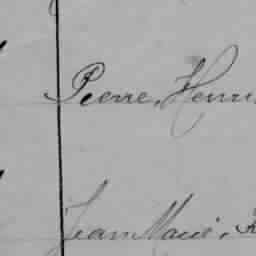 Pierre, Henri
Jean Marie,